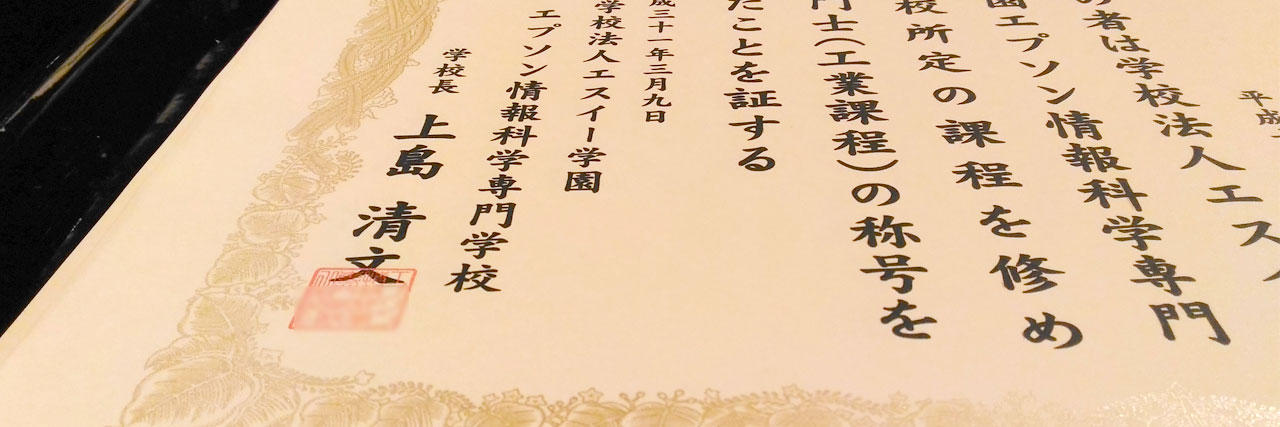 平成
の者は学校法人エスイ
園エプソン情報科学専門
校所定の課程を修め
門士(工業課程)の称号を
たことを証する
成三十一年三月九日
学校法人エスイー学園
エプソン情報科学専門学校
学校長 上島 清文